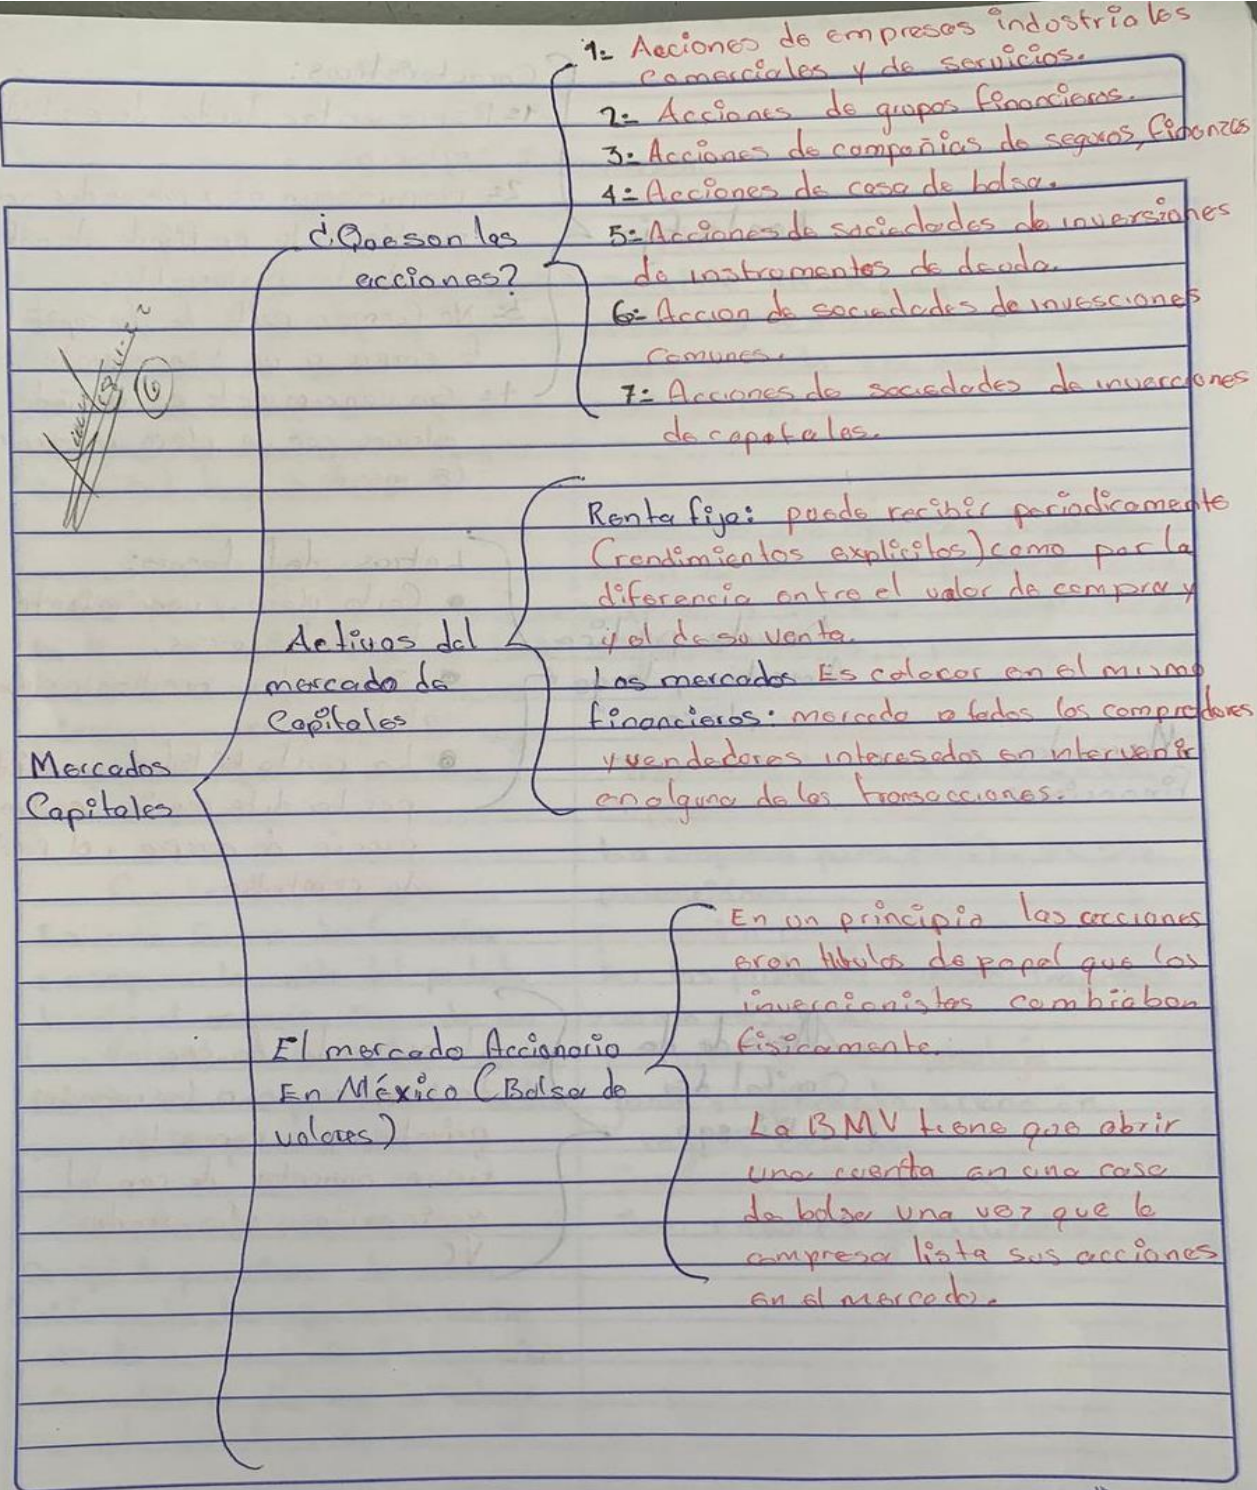 1= Acciones de empresas industriales
comerciales y de servicios.
2= Acciones de grupos financieros.
3= Acciones de compañias de seguros, fibanzas
4= Acciones de casa de bolsa.
5= Acciones de sociedades de inversiones
de instromentos de deuda.
6= Accion de sociedades de invesciones
comunes.
7= Acciones de sociedades de inverciones
de capitales.
¿Que son las
acciones?
Renta fija: puede recibir periodicamente
(rendimientos explicitos) como por la
diferencia entre el valor de compra y
y el de su venta.
Los mercados Es colocar en el mismo
financieros: mercado a todos los compradores
y vendedores interesados en intervenir
en alguna de las transacciones.
Activos del
mercado de
Capitales
Mercados
Capitales
En un principio las acciones
eran titulos de papel que los
invercionistas cambiaban
fisicamente.
El mercado Accionario
En México (Bolsa de
valores)
La BMV tiene que abrir
una cuenta en una casa
de bolsa una vez que la
empresa lista sus acciones
en el mercado.